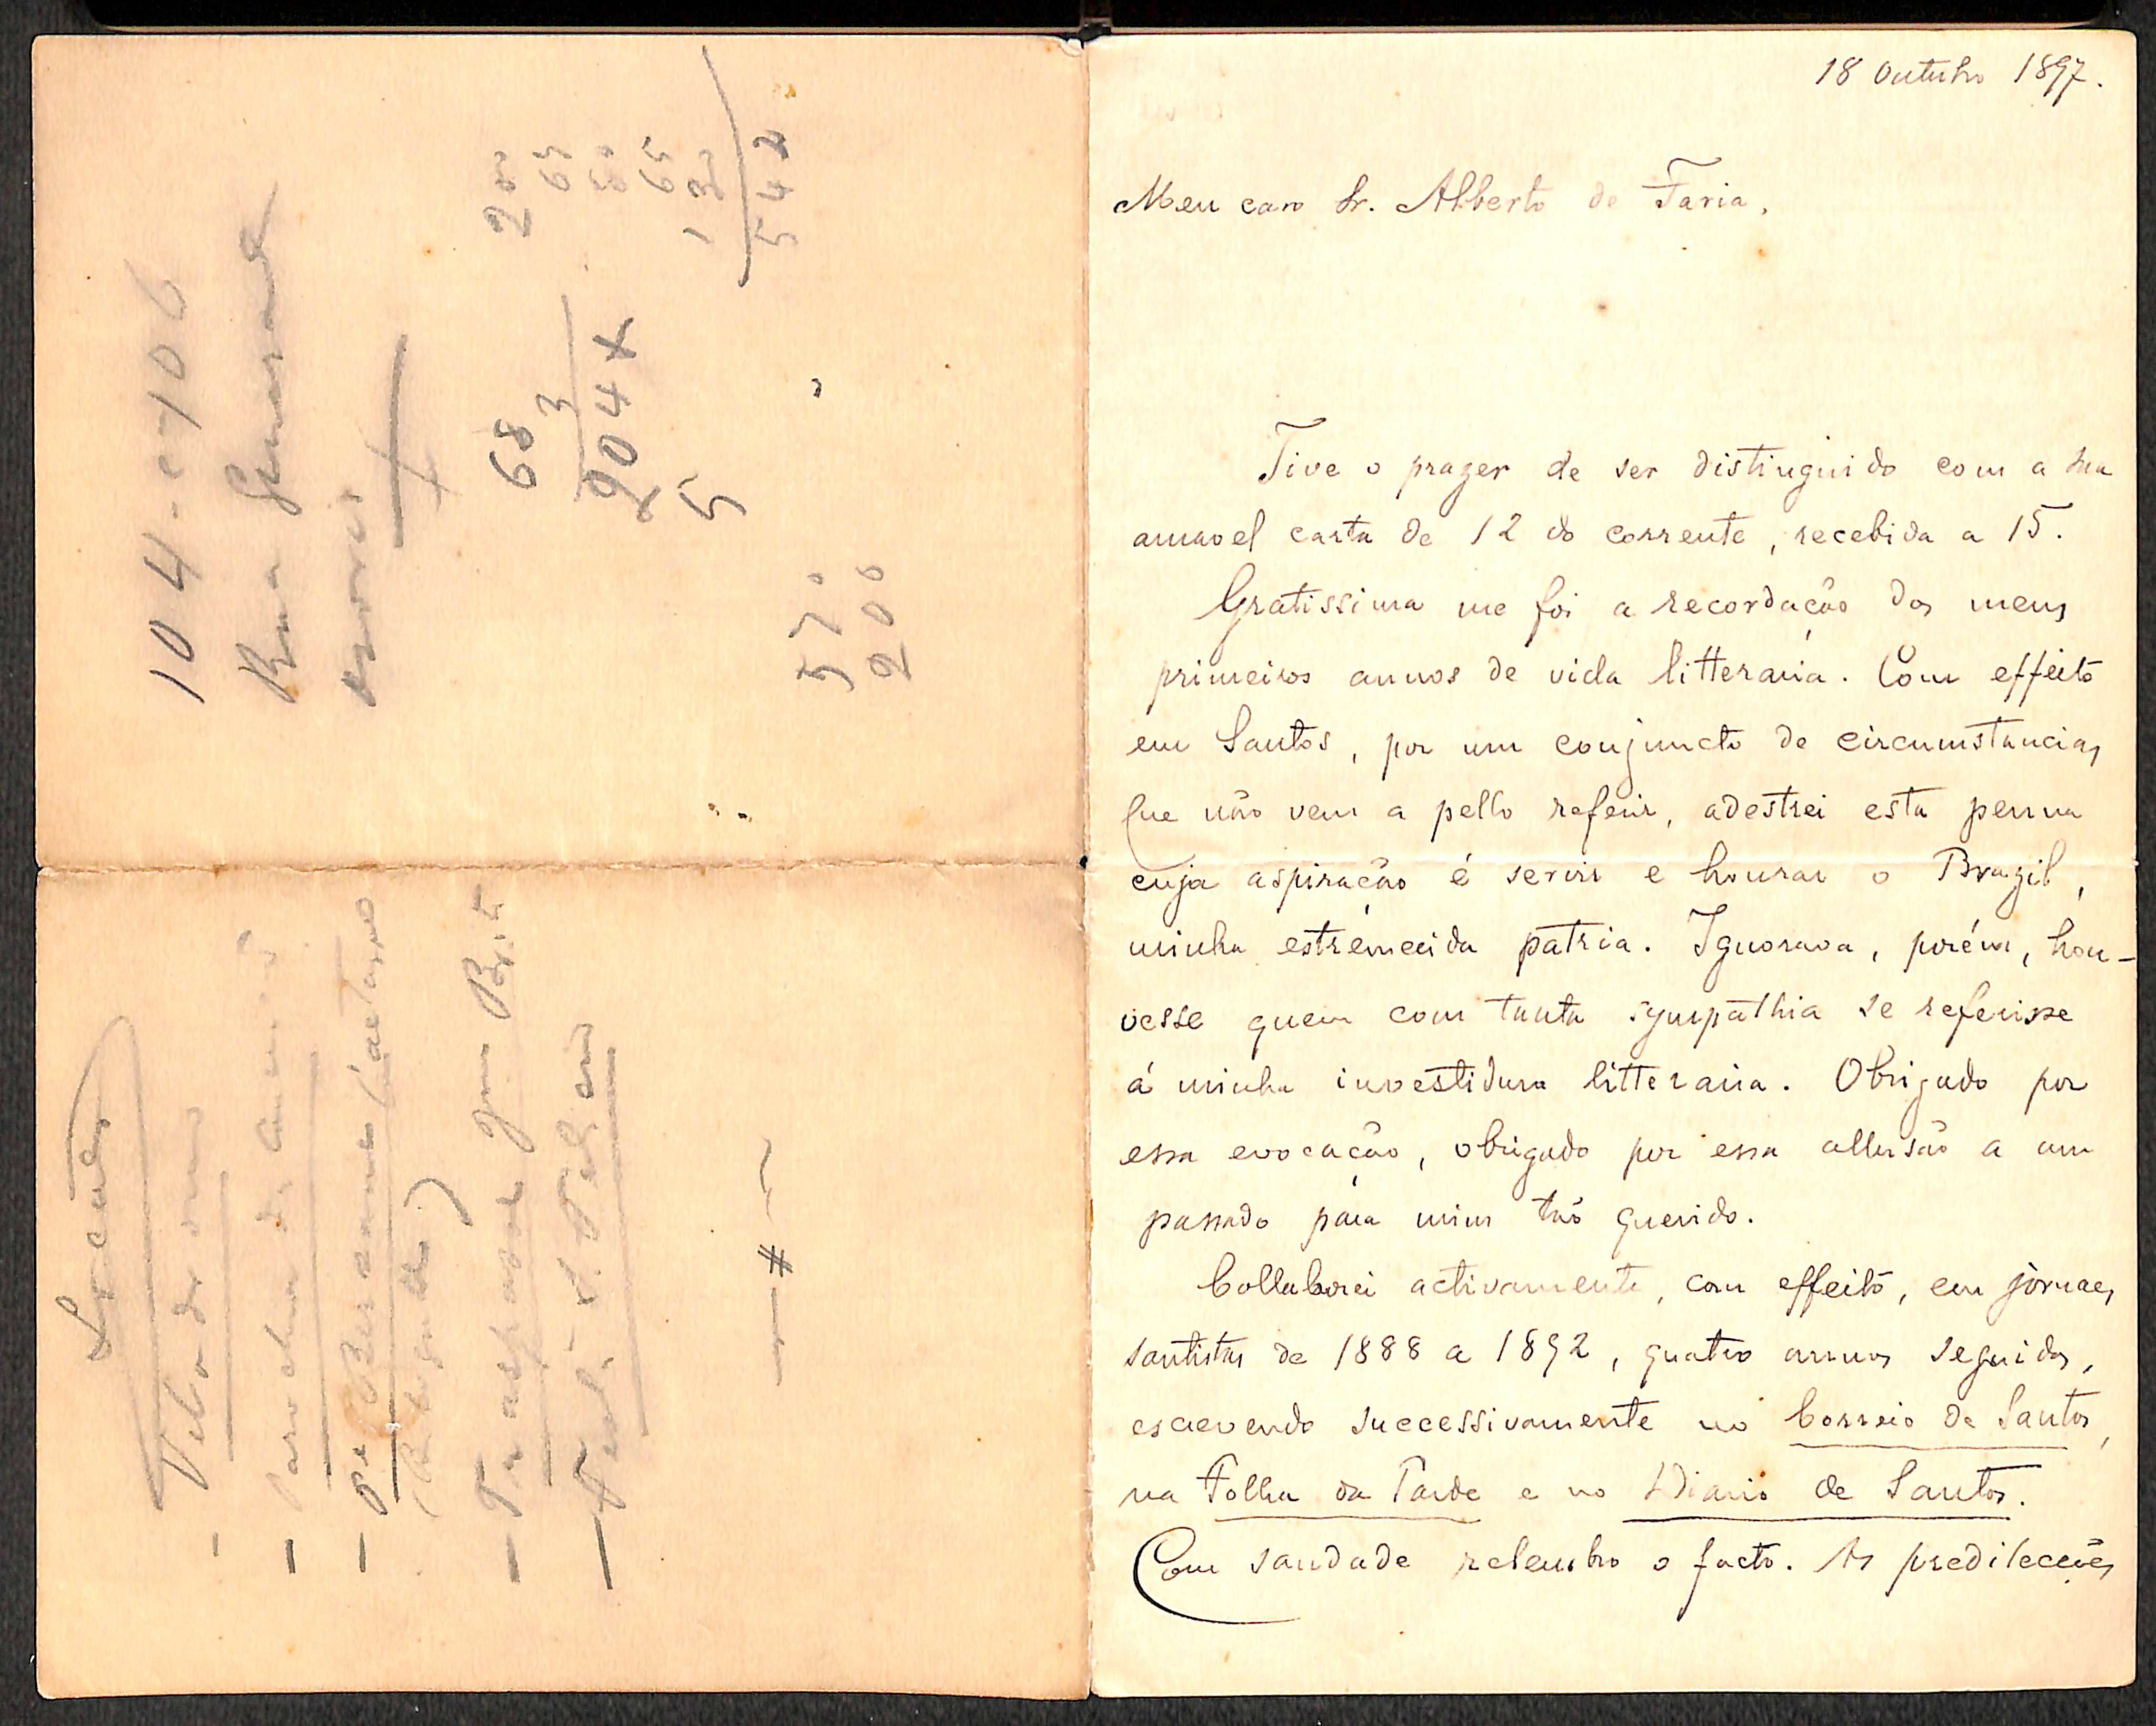 18 Outubro 1897.
Meu caro Sr. Alberto de Faria,
Tive o prazer de ser distinguido com a sua
amavel carta de 12 do corrente, recebida a 15.
Gratissima me foi a recordação dos meus
primeiros annos de vida litteraria. Com effeito
em Santos, por um conjuncto de circumstancias
que não vem a pello referir, adestrei esta penna
cuja aspiração é servir e honrar o Brazil,
minha estremecida patria. Ignorava, porém, hou-
vesse quem com tanta sympathia se referisse
á minha investidura litteraria. Obrigado por
essa evocação, obrigado por essa allusão a um
passado para mim tão querido.
Collaborei activamente, com effeito, em jornaes
santistas de 1888 a 1892, quatro annos seguidos,
escrevendo successivamente no Correio de Santos,
na Folha da Tarde e no Diario de Santos.
Com saudade relembro o facto. As predilecções
104
Rua
68
3
204
5
200
65
80
65
542
570
200